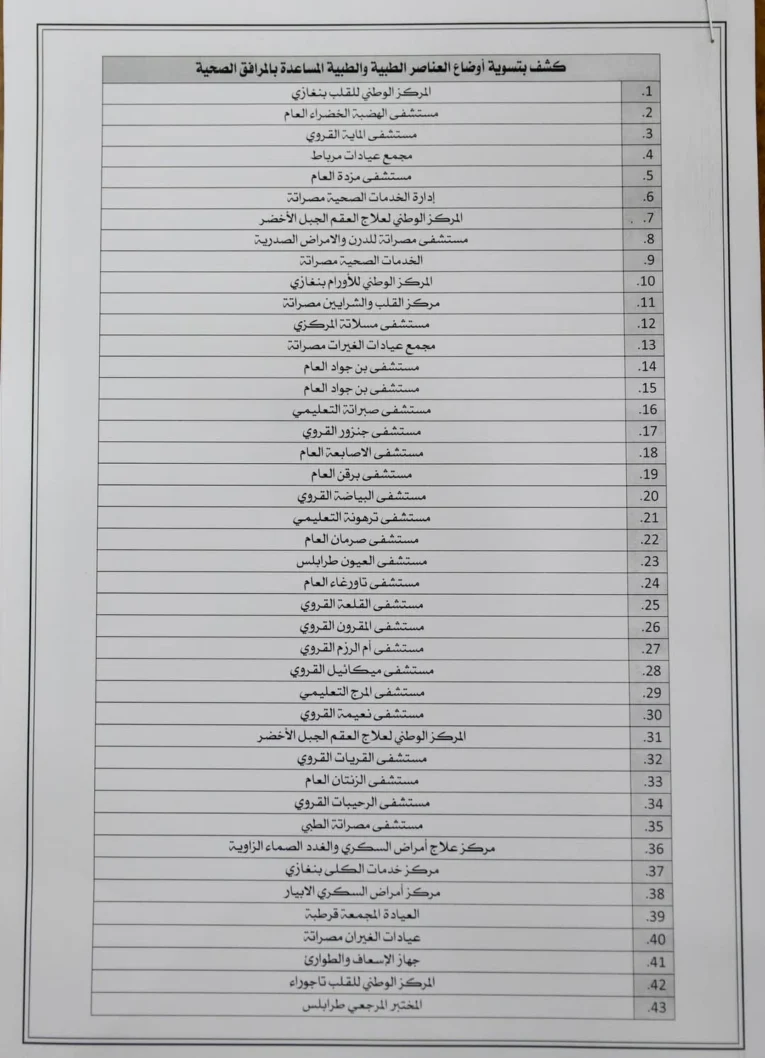 كشف بتسوية أوضاع العناصر الطبية والطبية المساعدة بالمرافق الصحية
1. المركز الوطني للقلب بنغازي
2. مستشفى الهضبة الخضراء العام
3. مستشفى الماية القروي
4. مجمع عيادات مرباط
5. مستشفى مزدة العام
6. إدارة الخدمات الصحية مصراتة
7. المركز الوطني لعلاج العقم الجبل الأخضر
8. مستشفى مصراتة للدرن والامراض الصدرية
9. الخدمات الصحية مصراتة
10. المركز الوطني للأورام بنغازي
11. مركز القلب والشرايين مصراتة
12. مستشفى مسلاتة المركزي
13. مجمع عيادات الغيرات مصراتة
14. مستشفى بن جواد العام
15. مستشفى بن جواد العام
16. مستشفى صبراتة التعليمي
17. مستشفى جنزور القروي
18. مستشفى الاصابعة العام
19. مستشفى برقن العام
20. مستشفى البياضة القروي
21. مستشفى ترهونة التعليمي
22. مستشفى صرمان العام
23. مستشفى العيون طرابلس
24. مستشفى تاورغاء العام
25. مستشفى القلعة القروي
26. مستشفى المقرون القروي
27. مستشفى أم الرزم القروي
28. مستشفى ميكائيل القروي
29. مستشفى المرج التعليمي
30. مستشفى نعيمة القروي
31. المركز الوطني لعلاج العقم الجبل الأخضر
32. مستشفى القريات القروي
33. مستشفى الزنتان العام
34. مستشفى الرحيبات القروي
35. مستشفى مصراتة الطبي
36. مركز علاج أمراض السكري والغدد الصماء الزاوية
37. مركز خدمات الكلى بنغازي
38. مركز أمراض السكري الابيار
39. العيادة المجمعة قرطبة
40. عيادات الغيران مصراتة
41. جهاز الإسعاف والطوارئ
42. المركز الوطني للقلب تاجوراء
43. المختبر المرجعي طرابلس